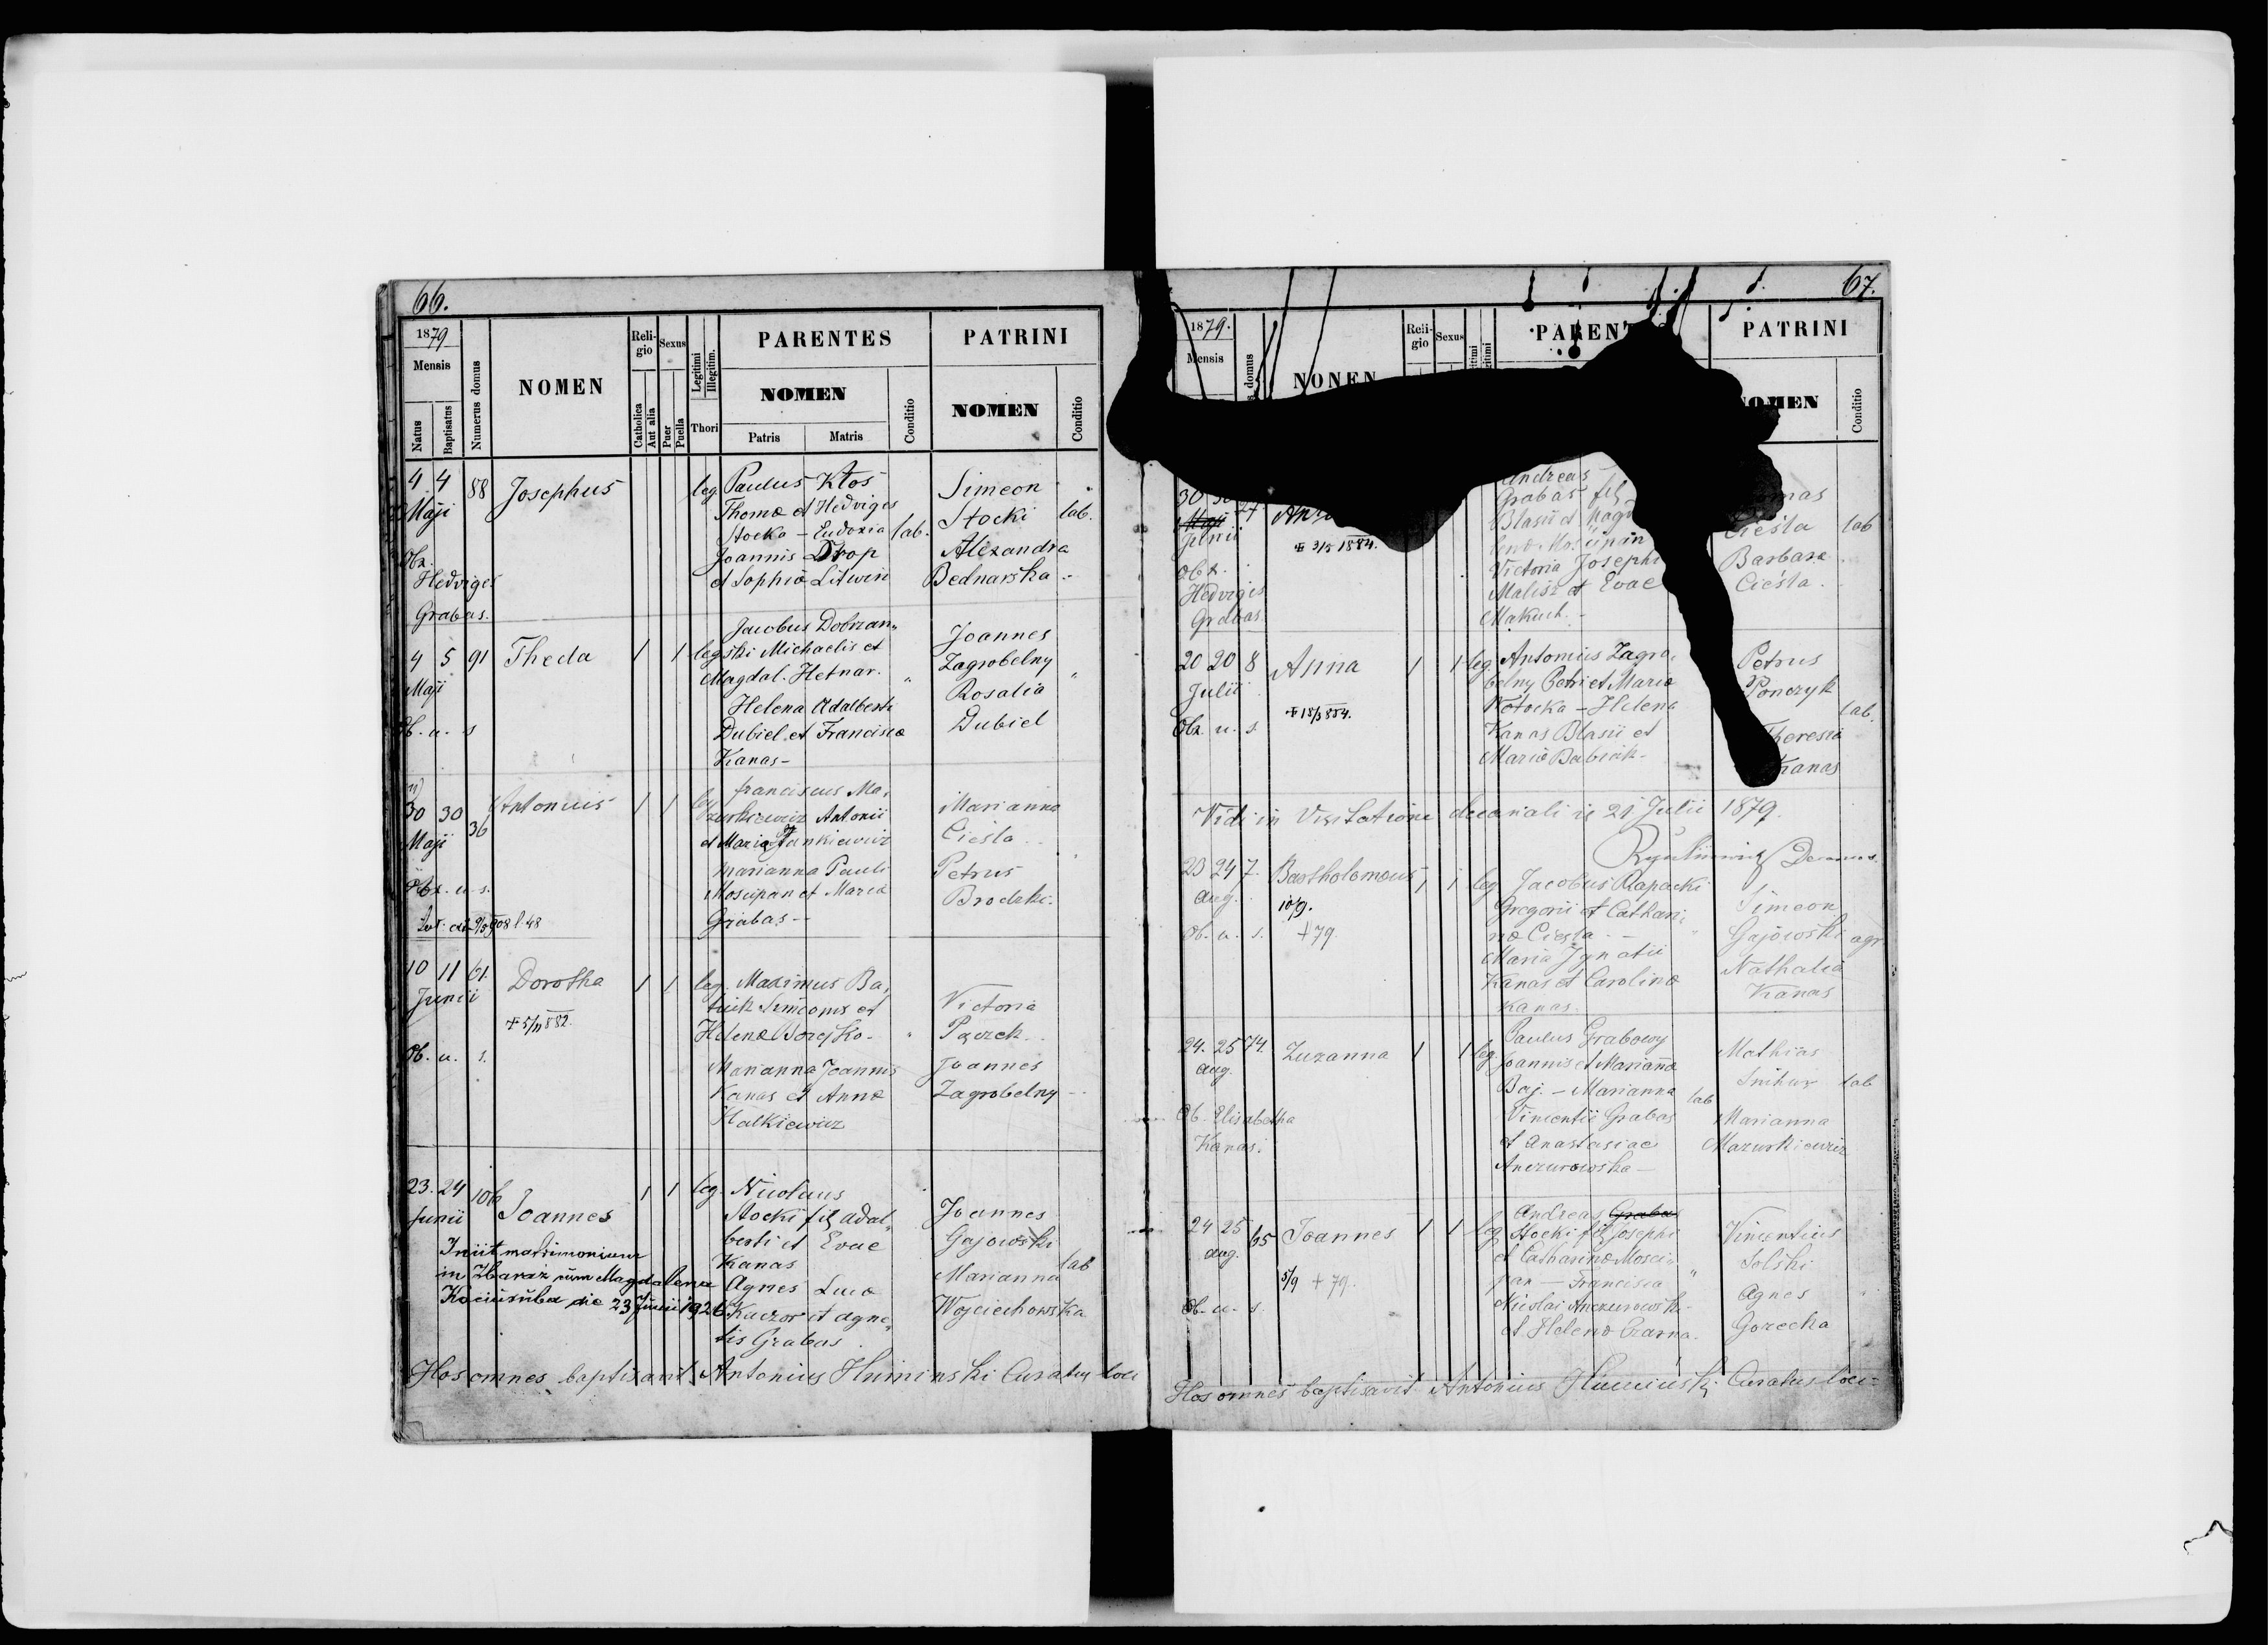 66.
1879
Mensis
Natus
Baptisatus
Numerus domus
NOMEN
Reli-
gio
Catholica
Aut alia
Sexus
Puer
Puella
Legitimi
Illegitim.
Thori
PARENTES
NOMEN
Patris
Matris
Conditio
PATRINI
NOMEN
Conditio
4 4 88 Josephus leg Paulus Kłos Simeon
Maji Thoma et Hedviges Stocki lab.
Stocka - Eudoxia lab.
Obx. Joannis Drop Alexandra
Hedviges et Sophia Litwin Bednarska
Grabas.
Jacobus Dobrzan„ Joannes
4 5 91 Thecla 1 1 leg ski Michaelis et Zagrobelny
Maji Magdal. Hetnar. „ Rosalia „
Helena Adalberti Dubiel
Ob. u. s Dubiel et Francisca
Kanas -
30 30 36 Antonius 1 1 leg franciscus Ma, Marianna
Maji zurkiewicz Antonii Cieśla
et Maria Jankiewicz
Marianna Pauli Petrus
Obx. u. s. Moscipan et Maria Brodzki.
48 Grabas -
10 11 61. Dorotha 1 1 leg. Maximus Ba,
Junii Simeonis et Victoria
+ 5/11 882. Helena „
Ob. u. s. Marianna Joannis Joannes
Kanas et Anna Zagrobelny
Halkiewicz
23. 24 106 Joannes 1 1 leg. Nicolaus
Junii Stocki fil Adal„ Joannes
Iniit matrimonium berti et Evae Gajowski
in Zbaraż cum Magdalena Kanas Marianna lab
die 23 Junii 1926 Agnes Luca Wojciechowska
Kaczor et Agne„
tis Grabas
Hos omnes baptisavit Antonius Huminski Curatus loci
67.
1879.
Mensis
domus
NONEN
Reli-
gio
Sexus
PARENT
PATRINI
OMEN
Conditio
Andreas
30 Grabas fil
Maji Blasii et Cieśla lab
Junii Moscipan
+ 3/5 1884. Victoria Josephi Barbara
Obx. Malisz et Evae Cieśla.
Hedviges Makuch. -
Grabas
20 20 8 Anna 1 1 leg Antonius Zagro, Petrus
Julii belny Petri et Maria Ponczyk
- Helena lab.
Obx. u. s. Kanas Blasii et Theresia
Maria Babiak - Kanas
Vidi in Visitatione decanali 21 Julii 1879.
23 24 7. Bartholomeus 1 1 leg Jacobus Rapacki
Aug. 10/9. Gregorii et Cathari, Simeon
Ob. u. s. + 79. na Cieśla - - „ Gajowski agr
Maria Ignatii Nathalia
Kanas et Carolina Kanas
Kanas.
24. 25 74. Zuzanna 1 1 leg. Paulus Grabowy Mathias
Aug. Joannis et Marianna Snihur lab
Baj. - Marianna lab
Ob. Elisabetha Vincentii Grabas Marianna
Kanas. et Anastasiae Mazurkiewicz
Anczurowska -
24 25 65 Joannes 1 1 leg Andreas Grabas
Aug. Stocki fil Josephi Vincentius
et Catharina Mosci„ Solski
5/9 + 79. pan - Francisca „
Ob. u. s. Nicolai Anczurowski - Agnes „
et Helena Czarna. Gorecka
Hos omnes baptisavit Antonius Humiński Curatus loci -